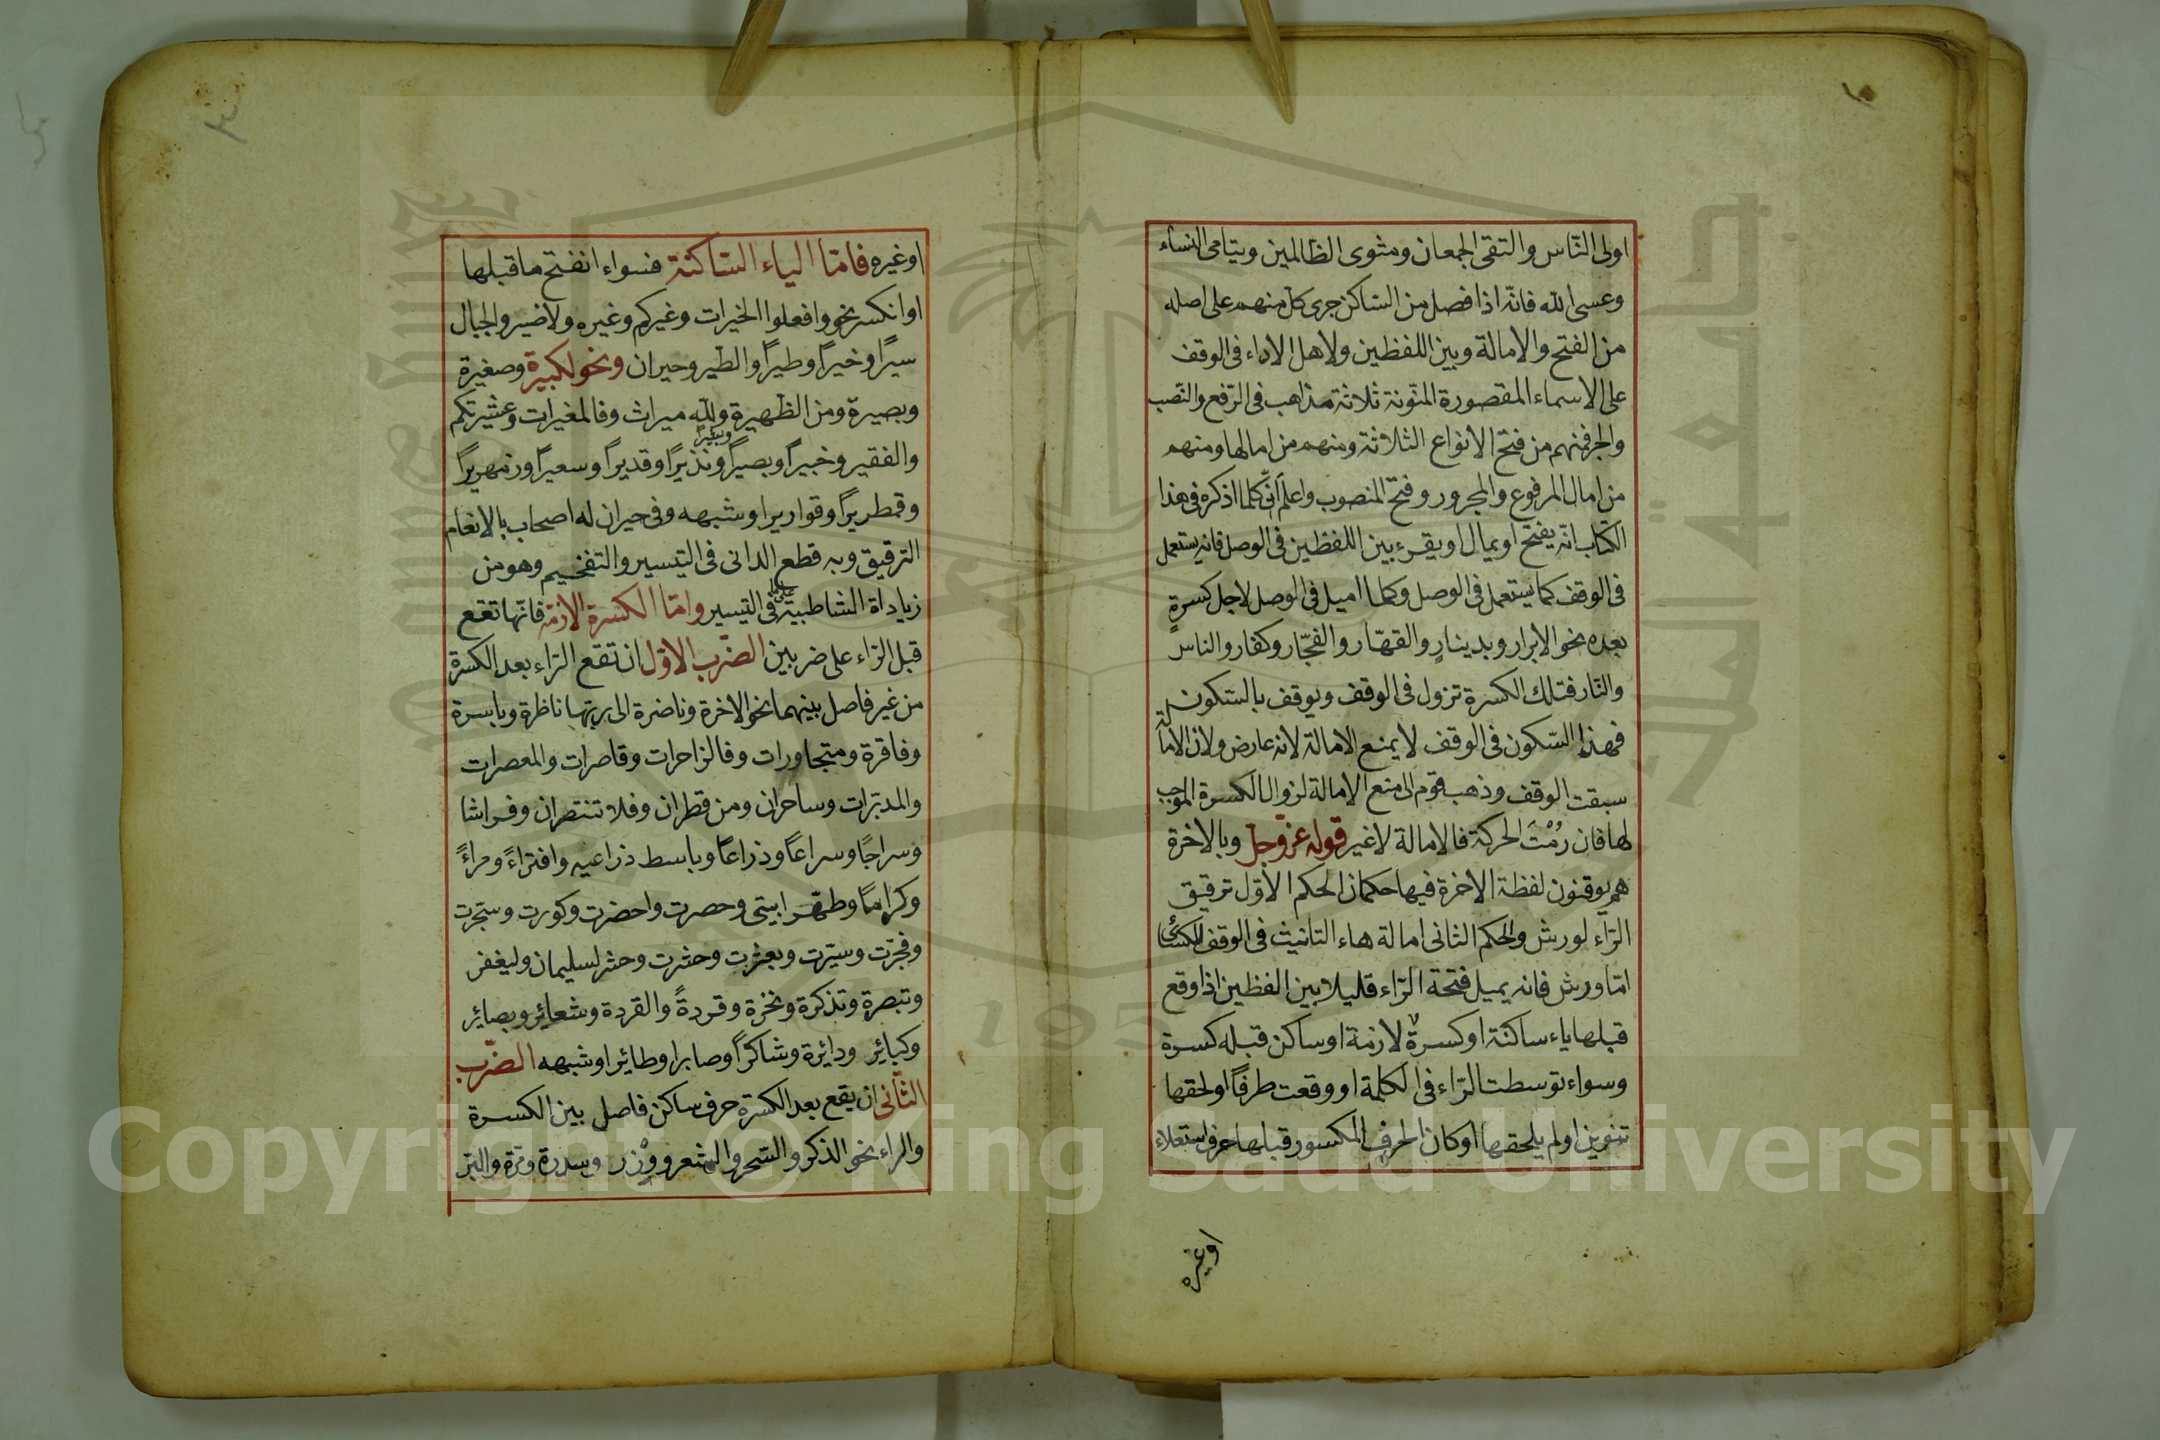 اولى النّاس والتقى الجمعان ومثوى الظالمين ويتامى النساء
وعسى الله فانّه اذا فصل من السّاكن جرى كل منهم على اصله
من الفتح والامالة وبين اللفظين ولاهل الاداء فى الوقف
على الاسماء المقصورة المنّونة ثلاثة مذاهب فى الرّفع والنّصب
والجر فمنهم من فتح الانواع الثلاثة ومنهم من امالها ومنهم
من امال المرفوع والمجرور وفتح المنصوب واعلم انّى كلما اذكره فى هذا
الكتاب انّه يفتح او يمال او يقرء بين اللفظين فى الوصل فانه يستعمل
فى الوقف كما يستعمل فى الوصل وكلما اميل فى الوصل لاجل كسرةٍ
بعده نحو الابرار وبدينارٍ والقهّار والفجّار وكفار والناس
والنّار فتلك الكسرة تزول فى الوقف ويوقف بالسّكون
فهذا السّكون فى الوقف لا يمنع الامالة لانه عارض ولان الامالة
سبقت الوقف وذهب قوم الى منع الامالة لزوال الكسرة الموجب
لها فان رُمْتَ الحركة فالامالة لا غير قوله عزّ وجلّ وبالاخرة
هم يوقنون لفظة الاخرة فيها حكمان الحكم الاوّل ترقيق
الرّاء لورش والحكم الثانى امالة هاء التانيث فى الوقف للكسائى
امّا ورش فانه يميل فتحة الرّاء قليلا بين الفظين اذا وقع
قبلها ياء ساكنة او كسرة لازمة او ساكن قبله كسرة
وسواء توسطت الرّاء فى الكلمة او وقعت طرفًا او لحقها
تنوين او لم يلحقها او كان الحرف المكسور قبلها حرف استعلاء
اوغيره
اوغيره فامّا الياء السّاكنة فسواء انفتح ما قبلها
او انكسر نحو وافعلوا الخيرات وغيركم وغيره ولا ضير والجبال
سيرًا وخيرًا وطيرًا والطير وحيران ونحو لكبيرة وصغيرة
وبصيرة ومن الظهيرة ولله ميراث وفالمغيرات وعشيرتكم
والفقير وخبيرًا وبصيرًا ونذيرًا وقديرًا وسعيرًا وزمهريرًا
وقمطريرًا وقواريرا وشبهه وفى حيران له اصحاب بالانعام
الترقيق وبه قطع الدانى فى التيسير والتفخيم وهو من
زياداة الشاطبية على ما فى التيسير وامّا الكسرة الازمة فانّها تقع
قبل الرّاء على ضربين الضّرب الاوّل ان تقع الرّاء بعد الكسرة
من غير فاصل بينهما نحو الاخرة وناضرة الى ربّها ناظرة وباسرة
وفاقرة ومتجاورات وفالزاجرات وقاصرات والمعصرات
والمدبّرات وساحران ومن قطران وفلا تنتصران وفراشا
وسراجًا وسراعًا وذراعًا وباسط ذراعيه وافتراءً ومراءً
وكرامًا وطهّرا بيتى وحصرت واحضرت وكورت وسجّرت
وفجّرت وسيّرت وبعثرت وحشرت وحشر لسليمان وليغفر
وتبصرة وتذكرة ونخرة وقردةً والقردة وشعائر وبصائر
وكبائر ودائرة وشاكرًا وصابرا وطائرا وشبهه الضّرب
الثّانى ان يقع بعد الكسرة حرف ساكن فاصل بين الكسرة
والراء نحو الذكر والسّحر والشعر ووِزْر وسدرة ومرة والبرّ
Copyright © King Saud University
1957